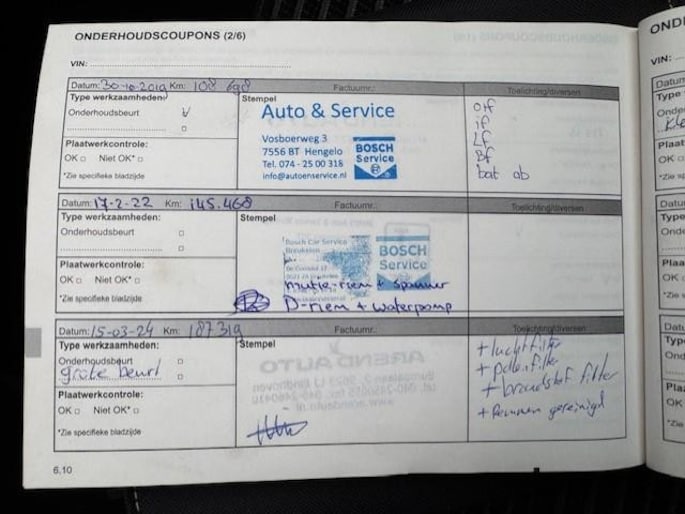 ONDERHOUDSCOUPONS (2/6)
VIN:
Datum: 30-10-2019 Km: 108 698 Factuurnr.: Toelichting/diversen
Type werkzaamheden:
Onderhoudsbeurt V
Plaatwerkcontrole:
OK Niet OK*
*Zie specifieke bladzijde
Stempel
Auto & Service
Vosboerweg 3
7556 BT Hengelo
Tel. 074 - 25 00 318
info@autoenservice.nl
BOSCH
Service
olf
if
Lf
Bf
bat ab
Datum: 17-2-22 Km: 145.468 Factuurnr.: Toelichting/diversen
Type werkzaamheden:
Onderhoudsbeurt
Plaatwerkcontrole:
OK Niet OK*
*Zie specifieke bladzijde
Stempel
Bosch Car Service
BOSCH
Service
multie-riem + spanner
D-riem + waterpomp
Datum: 15-03-24 Km: 187.319 Factuurnr.: Toelichting/diversen
Type werkzaamheden:
Onderhoudsbeurt
grote beurt
Plaatwerkcontrole:
OK Niet OK*
*Zie specifieke bladzijde
Stempel
AREND AUTO
+ luchtfilter
+ pollenfilter
+ brandstof filter
+ Remmen gereinigd
6.10